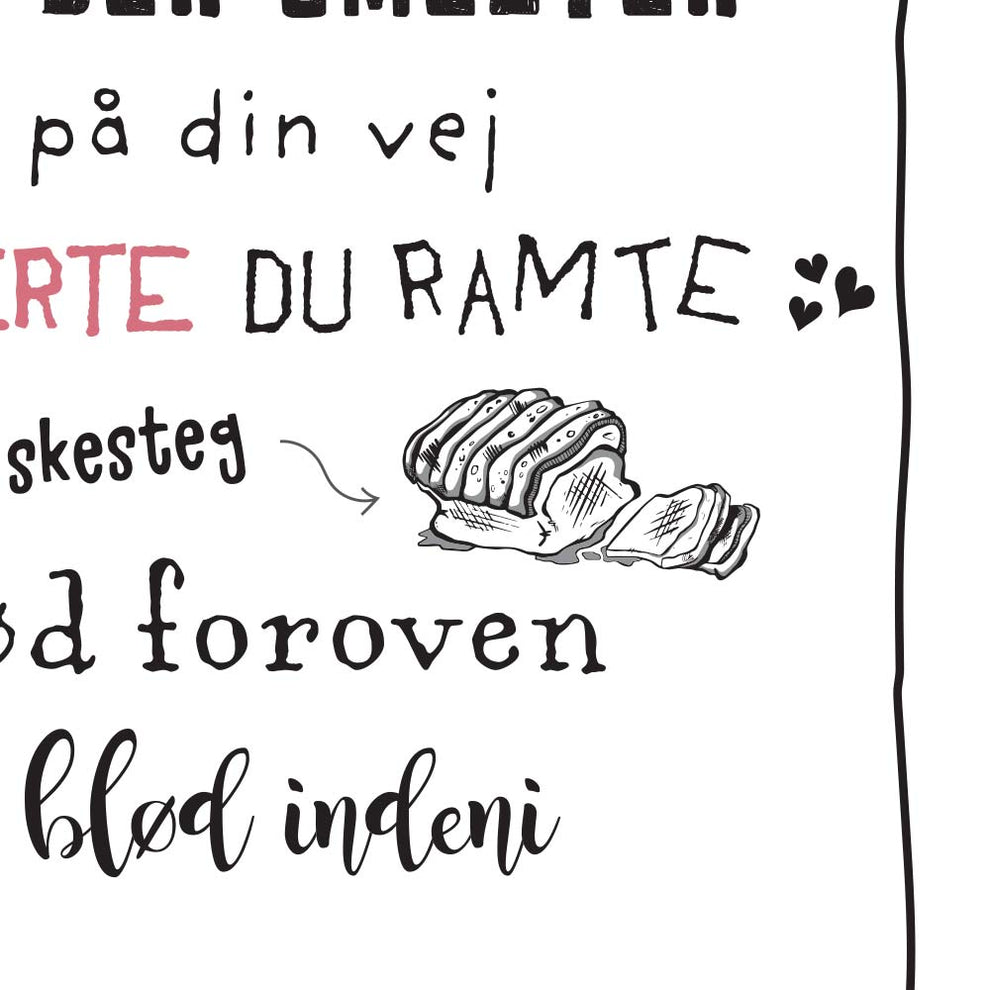 på din vej
ERTE DU RAMTE
skesteg
ød foroven
blød indeni